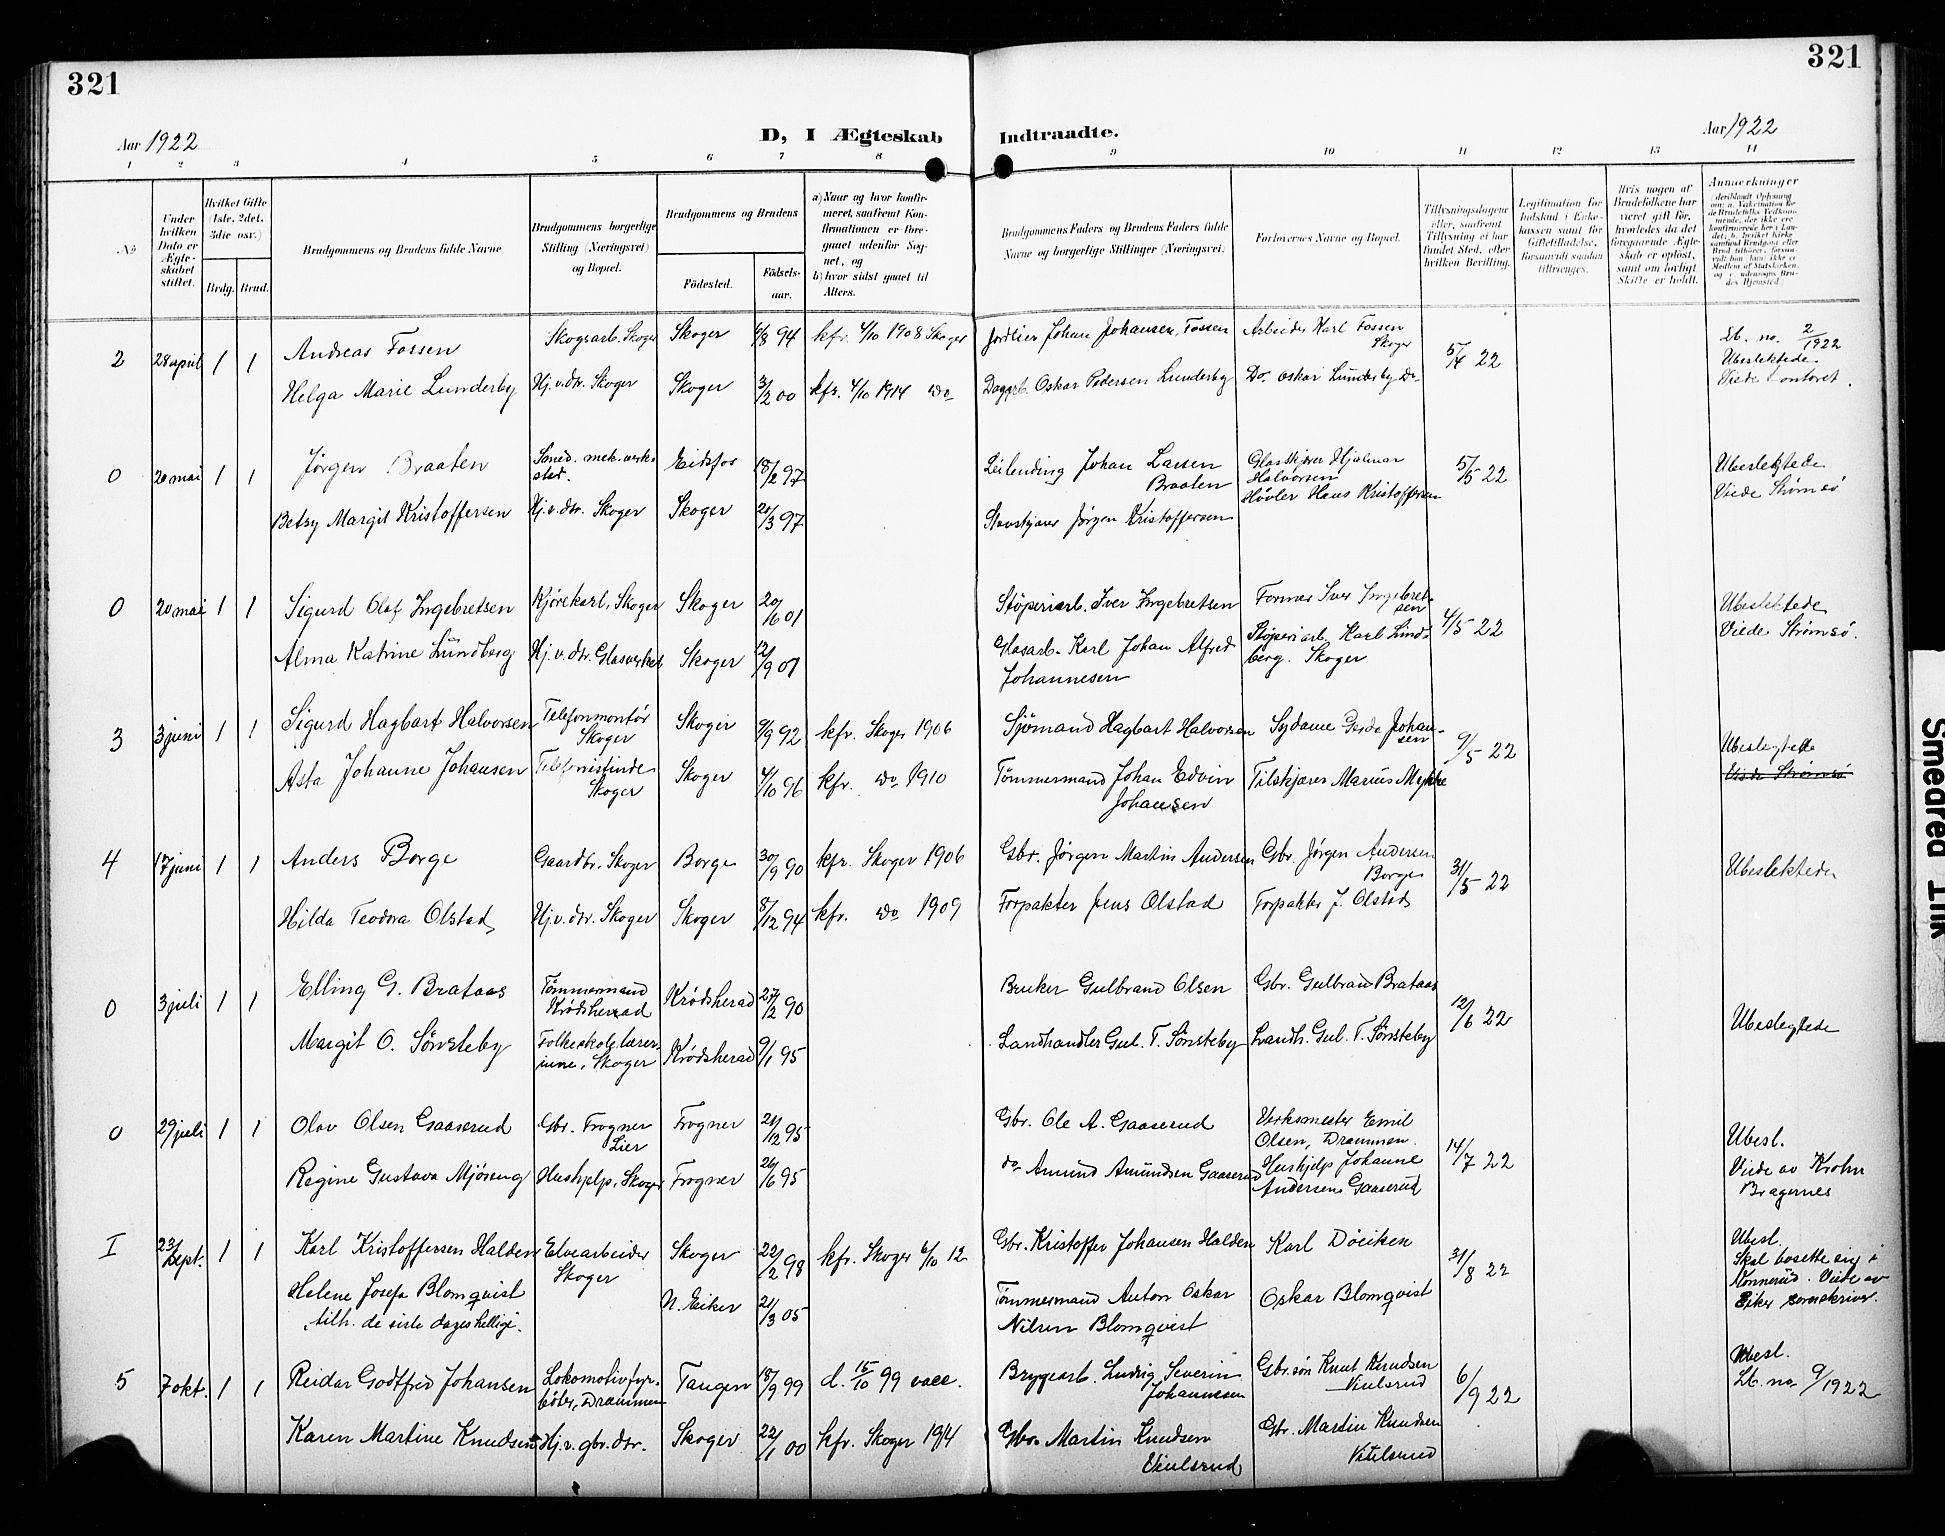 321
321
Aar 1922
D, I Ægteskab Indtraadte.
Aar 1922
1 2 3 4 5 6 7 8 9 10 11 12 13 14
No.
Under hvilken Dato er Ægteskabet stiftet.
Hvilket Gifte (1ste, 2det, 3die osv.)
Brdg. Brud.
Brudgommens og Brudens fulde Navne
Brudgommens borgerlige Stilling (Næringsvei) og Bopæl.
Brudgommens og Brudens
Födested.
Födselsaar.
a) Naar og hvor konfirmeret, saafremt Konfirmationen er foregaaet udenfor Sognet, og
b) hvor sidst gaaet til Alters.
Brudgommens Faders og Brudens Faders fulde Navne og borgerlige Stillinger (Næringsvei).
Forlovernes Navne og Bopæl.
Tillysningsdagene eller, saafremt Tillysning ei har fundet Sted, efter hvilken Bevilling.
Legitimation for Indskud i Enkekassen samt for Giftetilladelse, forsaavidt saadan tiltrænges.
Hvis nogen af Brudefolkene har været gift för, hvorledes da det foregaaende Ægteskab er oplöst, samt om lovligt Skifte er holdt.
Anmærkninger
2 28 april 1 1 Andreas Fossen Skogsarb. Skoger Skoger 6/8 94 kfr. 4/10 1908 Skoger Johan Johansen, Fossen Arbeider Karl Fossen Skoger 5/4 22 Lb. no. 2/1922
Helga Marie Lunderby Hj.v.dtr. Skoger Skoger 3/2 00 kfr. 4/10 1914 do Dagarb. Oskar Pedersen Lunderby Do. Oskar Lunderby do. Ubeslektede
Viede i kontoret.
0 20 mai 1 1 Jörgen Braaten Smed. mek. verksted. Eidsfos 18/2 97 Leilending Johan Larsen Braaten Glasskjærer Hjalmar Halvorsen 5/5 22 Ubeslektede
Betsy Margit Kristoffersen Hj.v.dtr. Skoger Skoger 20/3 97 Stavskjærer Jørgen Kristoffersen Høvler Hans Kristoffersen Viede Strømsö
0 20 mai 1 1 Sigurd Olaf Ingebretsen Kjörekarl, Skoger Skoger 20/6 01 Stöperiarb. Iver Ingebretsen Former Iver Ingebretsen 4/5 22 Ubeslektede
Alma Katrine Lundberg Hj.v.dtr. Glasverket Skoger 12/9 01 Glasarb. Karl Johan Alfred Johannesen Stöperiarb. Karl Lundberg. Skoger Viede Strømsö.
3 3 juni 1 1 Sigurd Hagbart Halvorsen Telefonmontör Skoger Skoger 9/9 92 kfr. Skoger 1906 Sjömand Hagbart Halvorsen Sydame Gerda Johansen 9/5 22 Ubeslegtede
Asta Johanne Johansen Telefonistinde Skoger Skoger 4/10 96 kfr. do 1910 Tömmermand Johan Edvin Johansen Tilskjærer Marius Myhre Viede Strømsö
4 17 juni 1 1 Anders Borge Gaardbr. Skoger Borge 30/9 90 kfr. Skoger 1906 Gbr. Jørgen Martin Andersen Gbr. Jörgen Andersen Borge 31/5 22 Ubeslektede
Hilda Teodora Olstad Hj.v.dtr. Skoger Skoger 8/12 94 kfr. do 1909 Forpakter Jens Olstad Forpakter J. Olstad
0 3 juli 1 1 Elling G. Brataas Tömmermand Krödsherad Krödsherad 27/2 90 Bruker Gulbrand Olsen Gbr. Gulbrand Brataas 12/6 22 Ubeslegtede
Margit O. Sönsteby Folkeskolelærerinne, Skoger Krödsherad 9/1 95 Landhandler Gul. T. Sönsteby Landh. Gul. T. Sönsteby
0 29 juli 1 1 Olav Olsen Gaaserud Gbr. Frogner Lier Frogner 20/12 95 Gbr. Ole A. Gaaserud Verksmester Emil Olsen, Drammen. 14/7 22 Ubesl.
Regine Gustava Mjöseng Hushjelp, Skoger Frogner 26/6 95 do Amund Amundsen Gaaserud Hushjelp Johanne Andersen Gaaserud Viede av Krohn Bragernes
I 23/sept. 1 1 Karl Kristoffersen Halden Elvearbeider Skoger Skoger 22/12 98 kfr. Skoger 6/10 12 Gbr. Kristoffer Johansen Halden Karl Döviken 31/8 22 Ubesl.
Helene Josefa Blomqvist N. Eiker 21/3 05 Tömmermand Anton Oskar Nilsen Blomqvist Oskar Blomqvist Skal bosette sig i
tilh. de siste dages hellige. Konnerud. Viede av
Eiker sorenskriver.
5 7 okt. 1 1 Reidar Godtfred Johansen Lokomotivfyrböter, Drammen Tangen 18/9 99 d. 15/10 99 vacc. Bryggearb. Ludvig Severin Johannesen Gbr.sön Knut Knudsen Vivelsrud 6/9 22 Ubesl.
Karen Martine Knudsen Hj.v. gbr.dtr. Skoger 22/1 00 kfr. Skoger 1914 Gbr. Martin Knudsen Gbr. Martin Knudsen Lb. no 9/1922
Smedrud Trik